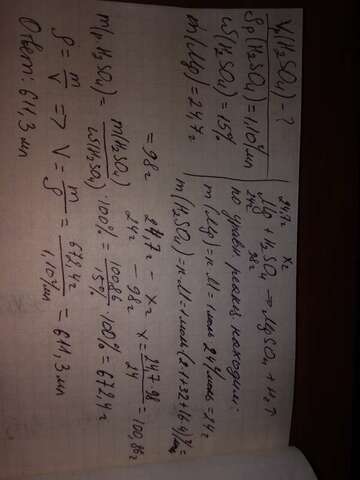 V(H₂SO₄) - ?
ρ(H₂SO₄) = 1,10 г/мл
ω(H₂SO₄) = 15%
m(Mg) = 24,7 г
24,7г xг
Mg + H₂SO₄ → MgSO₄ + H₂↑
24г 98г
по уравн. реакц. находим:
m(Mg) = n·M = 1 моль·24 г/моль = 24 г
m(H₂SO₄) = n·M = 1 моль·(2·1+32+16·4) г/моль =
= 98 г
24,7г - xг
24г - 98г
x = 24,7·98 / 24 = 100,86 г
m p. H₂SO₄) = m(H₂SO₄) / ω(H₂SO₄) · 100% = 100,86 / 15% · 100% = 672,4 г
ρ = m / V => V = m / ρ = 672,4 г / 1,10 г/мл = 611,3 мл
Ответ: 611,3 мл